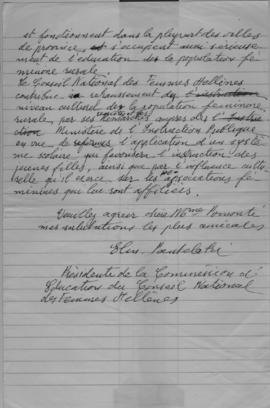 et fonctionnent dans la plupart des villes
de province et s'occupent aussi sérieuse
ment de l'éducation de la population fé
minine rurale.
Le Conseil National des Femmes Hellènes
contribue au rehaussement du
niveau culturel de la population féminine
rurale, par ses auprès de l'Instruc
tion Ministère de l'Instruction Publique
en vue de l'application d'un systè
me scolaire qui favorise l'instruction des
jeunes filles, ainsi que par l'influence cultu
relle qu'il exerce sur les associations fé
minines que lui sont affiliées.
Veuillez agréer chère Mme
mes salutations les plus amicales
Présidente de la Commission d'
Education du Conseil National
des Femmes Hellènes